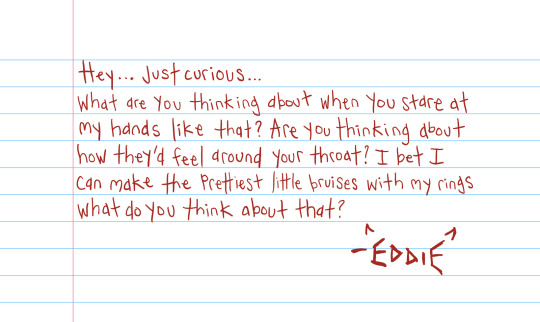 Hey... Just curious...
What are you thinking about when you stare at
my hands like that? Are you thinking about
how they'd feel around your throat? I bet I
can make the Prettiest little bruises with my rings
What do you think about that?
-^EDDIE^